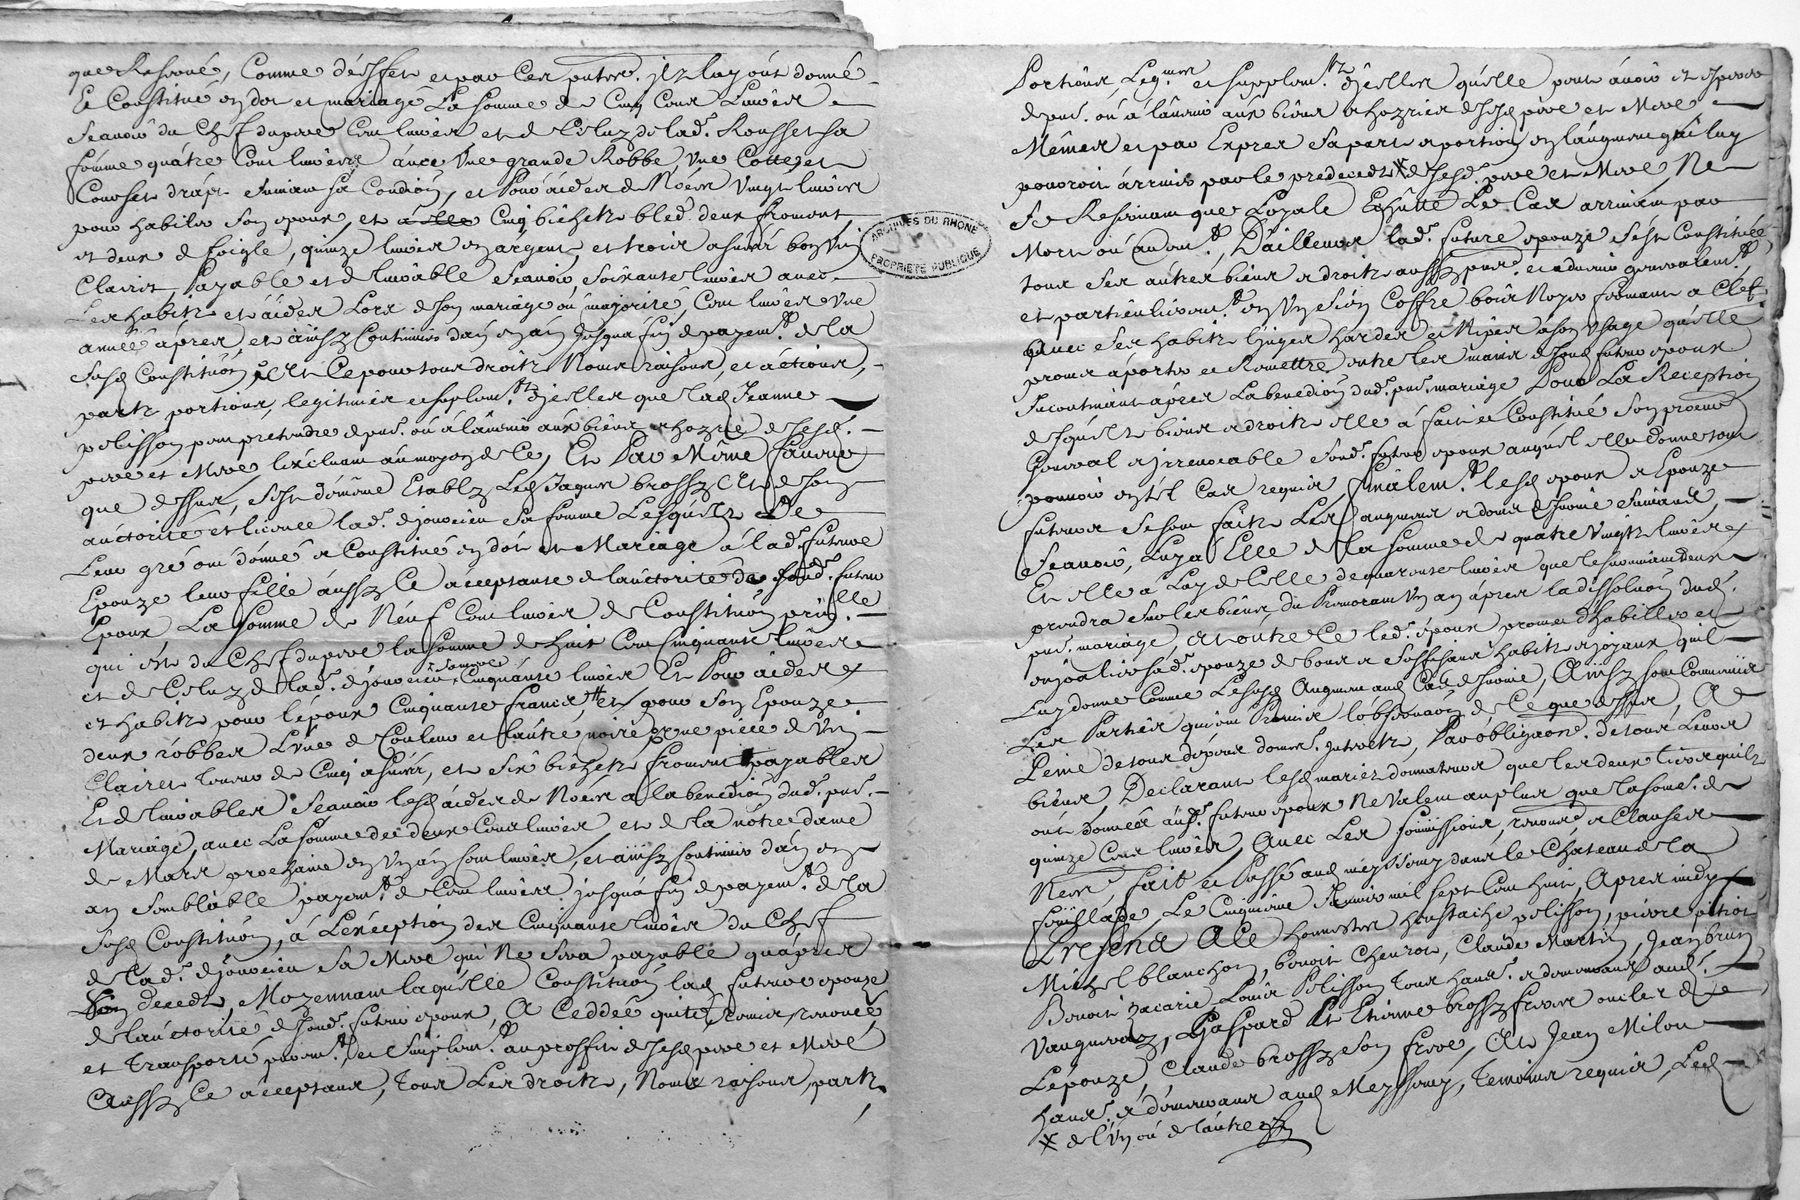 que Reservé, Comme d'éffet et par Ces pntes. ilz luy ont donné
Et Constitué en dot et mariage La somme de Cinq Cens Livres
Scavoir du Chef dupere Cent livres et de Celuy de lad. Rousset sa
femme quátre Cent livres avec Vne grande Robbe, Vne Cotte, et
Corset drápt suivant sa Condion, et Pour aider de Nóces Vingt livres
pour habiller Son epoux, et Cinq bichetz bled. deux froment
et deux de soigle, quinze livres en argent, et trois asnéés bon Vin
Clairet, Payable et delivrable Scavoir Soixante livres avec
Les habitz et aides Lors de Son mariage ou majorité, Cent livres Vne
année áprés, et ainsy Continuer d'an en an jusqua fin de payemt. de la
susd Constituon, Et Ce pour tous droitz Noms raisons, et actions,
partz portions, legitimes et suplemt. d'jcelles que lad Jeanne
pelisson peut pretendre de pnt. ou a l'avenir aux biens et hozrie de sesd.
pere et Mere, L'excluant au moyen de Ce, Et Par Même faveur
que dessus, s'est dememe Etably Led Jaques brossy Et de Son
auctorité et licence lad. dejouvcieu Sa femme Lesquelz De
Leur gré ont dónné et Constitué en dót et Mariage á lad. future
Epouze leur fille aussy Ce acceptante de lauctorité de sond. futur
Epoux La Somme de Néuf Cent livres de Constituon prins.lle
qui est du Chef dupere la somme de huit Cent Cinquante livres
et de Celuy de lad. dejouvcieu sa mere Cinquánte livres Et Pour aides
et habitz pour l'époux Cinquante francs, et pour Son Epouze
deux róbbes L'vne de Couleur et l'aútre noire, Vne piéce de Vin
Clairet Tenant de Cinq asnées, et six bichetz froment payables
Et delivrables Scavoir lesd áides de Nóces a la benediction dud. pnt.
Mariage, avec La somme de deux Cens livres et de la nótre dame
de Mars prochaine en Vn an Cent livres, et ainsy Continuer d'an en
an Semblable payemt. de Cent livres jusquá fin de payemt. de la
susd Constituon, á L'exception des Cinquante livres du Chef
de lad. dejouvcieu Sa Mere qui Ne sera payable quáprés
son decedz, Moyennant laquélle Constituon lad future epouze
de l'auctorité de sond. futur epoux, A Ceddée quitté, Remis, renoncé
et Transporté purem.t et simplem.t au proffit de sesd pere et Mere
Aussy Ce acceptans, Tous Les droitz, Noms raisons, partz
Portions, Legmes et supplem.tz d'jcelles quélle peut ávoir et esperer
de pnt. ou á l'avenir aux biens et hozries de sesd pere et Mere
Mêmes et par Exprés Sa part et portion en l'augment qui luy
pouroit árriver par le predecedz X de sesd. pere et Mere, Ne
Se Reservant que Loyale Echutte Le Cas arrivant par
Mort ou autremt., D'ailleurs lad. future epouze s'est Constituée
tous Ses autres biens et droitz aussy pnts. et advenir generalemt.
et particulieremt. en Vn Sien Coffre bois Noyer fermant a Cléf
Avec Ses habitz linges hardes et Nipes á son Vsage quélle
promet áporter et Remettre entre les mains de Sond futur epoux
Incontinant áprés La benediction dud. pnt. mariage Pour La Reception
desquélz biens et droitz elle á fait et Constitué Son procureur
General et irrevocable Sond. futur epoux auquél elle donne tout
pouvoir en tel Cas requis, Finalemt. lesd epoux et Epouze
futurs se sont faitz Les augment et dons de Survie Suivans,
Scavoir, Luy á Elle de la Somme de quatre Vingtz livres,
Et elle á Luy de Celle de quarante livres que le survivant deux
prendra Sur les biens du Premourant Vn an áprés la dissoluon dud.
pnt. mariage, Et outre Ce led. epoux promet d'habiller et
enjoalier sad. epouze de bons et Suffisans habitz et joyaux qu'il
Luy donne Comme Le susd Augment aud Cas de survie, Ainsy sont Convenues
Les Parties qui ont Promis l'observaon de Ce que dessus, A
Peine de tous dépens doms. Intretz, Par obligaon. de tous Leurs
biens, Declarans lesd mariez donnateurs que les deux tiers quilz
ont Donnés aud. futur epoux Ne Valent au plus que la som.e de
quinze Cens livres, Avec Les soumissions, renonce. et Clauses
Necess. fait et Passé aud meyssimy dans le Chateau de la
feuillade, Le Cinquieme Janvier mil sept Cent huit, Apres midy
Presence A Ce honnestes heustache pelisson, pierre pition
Michel blanchon, benoit Cheuron, Claude Martin, Jean brun
Benoit Zacarie, Louis Pelisson Tous habit. et demeurans aud.
Vaugneray, Gaspard Et Etienne brossy freres oncles de
L'épouze, Claude brossy Son frere, Et Jean Milon
habit. et demeurans aud Meyssimy, Temoins requis, Led
X de l'Vn ou de l'aútre
ARCHIVES DU RHONE
PROPRIÉTÉ PUBLIQUE